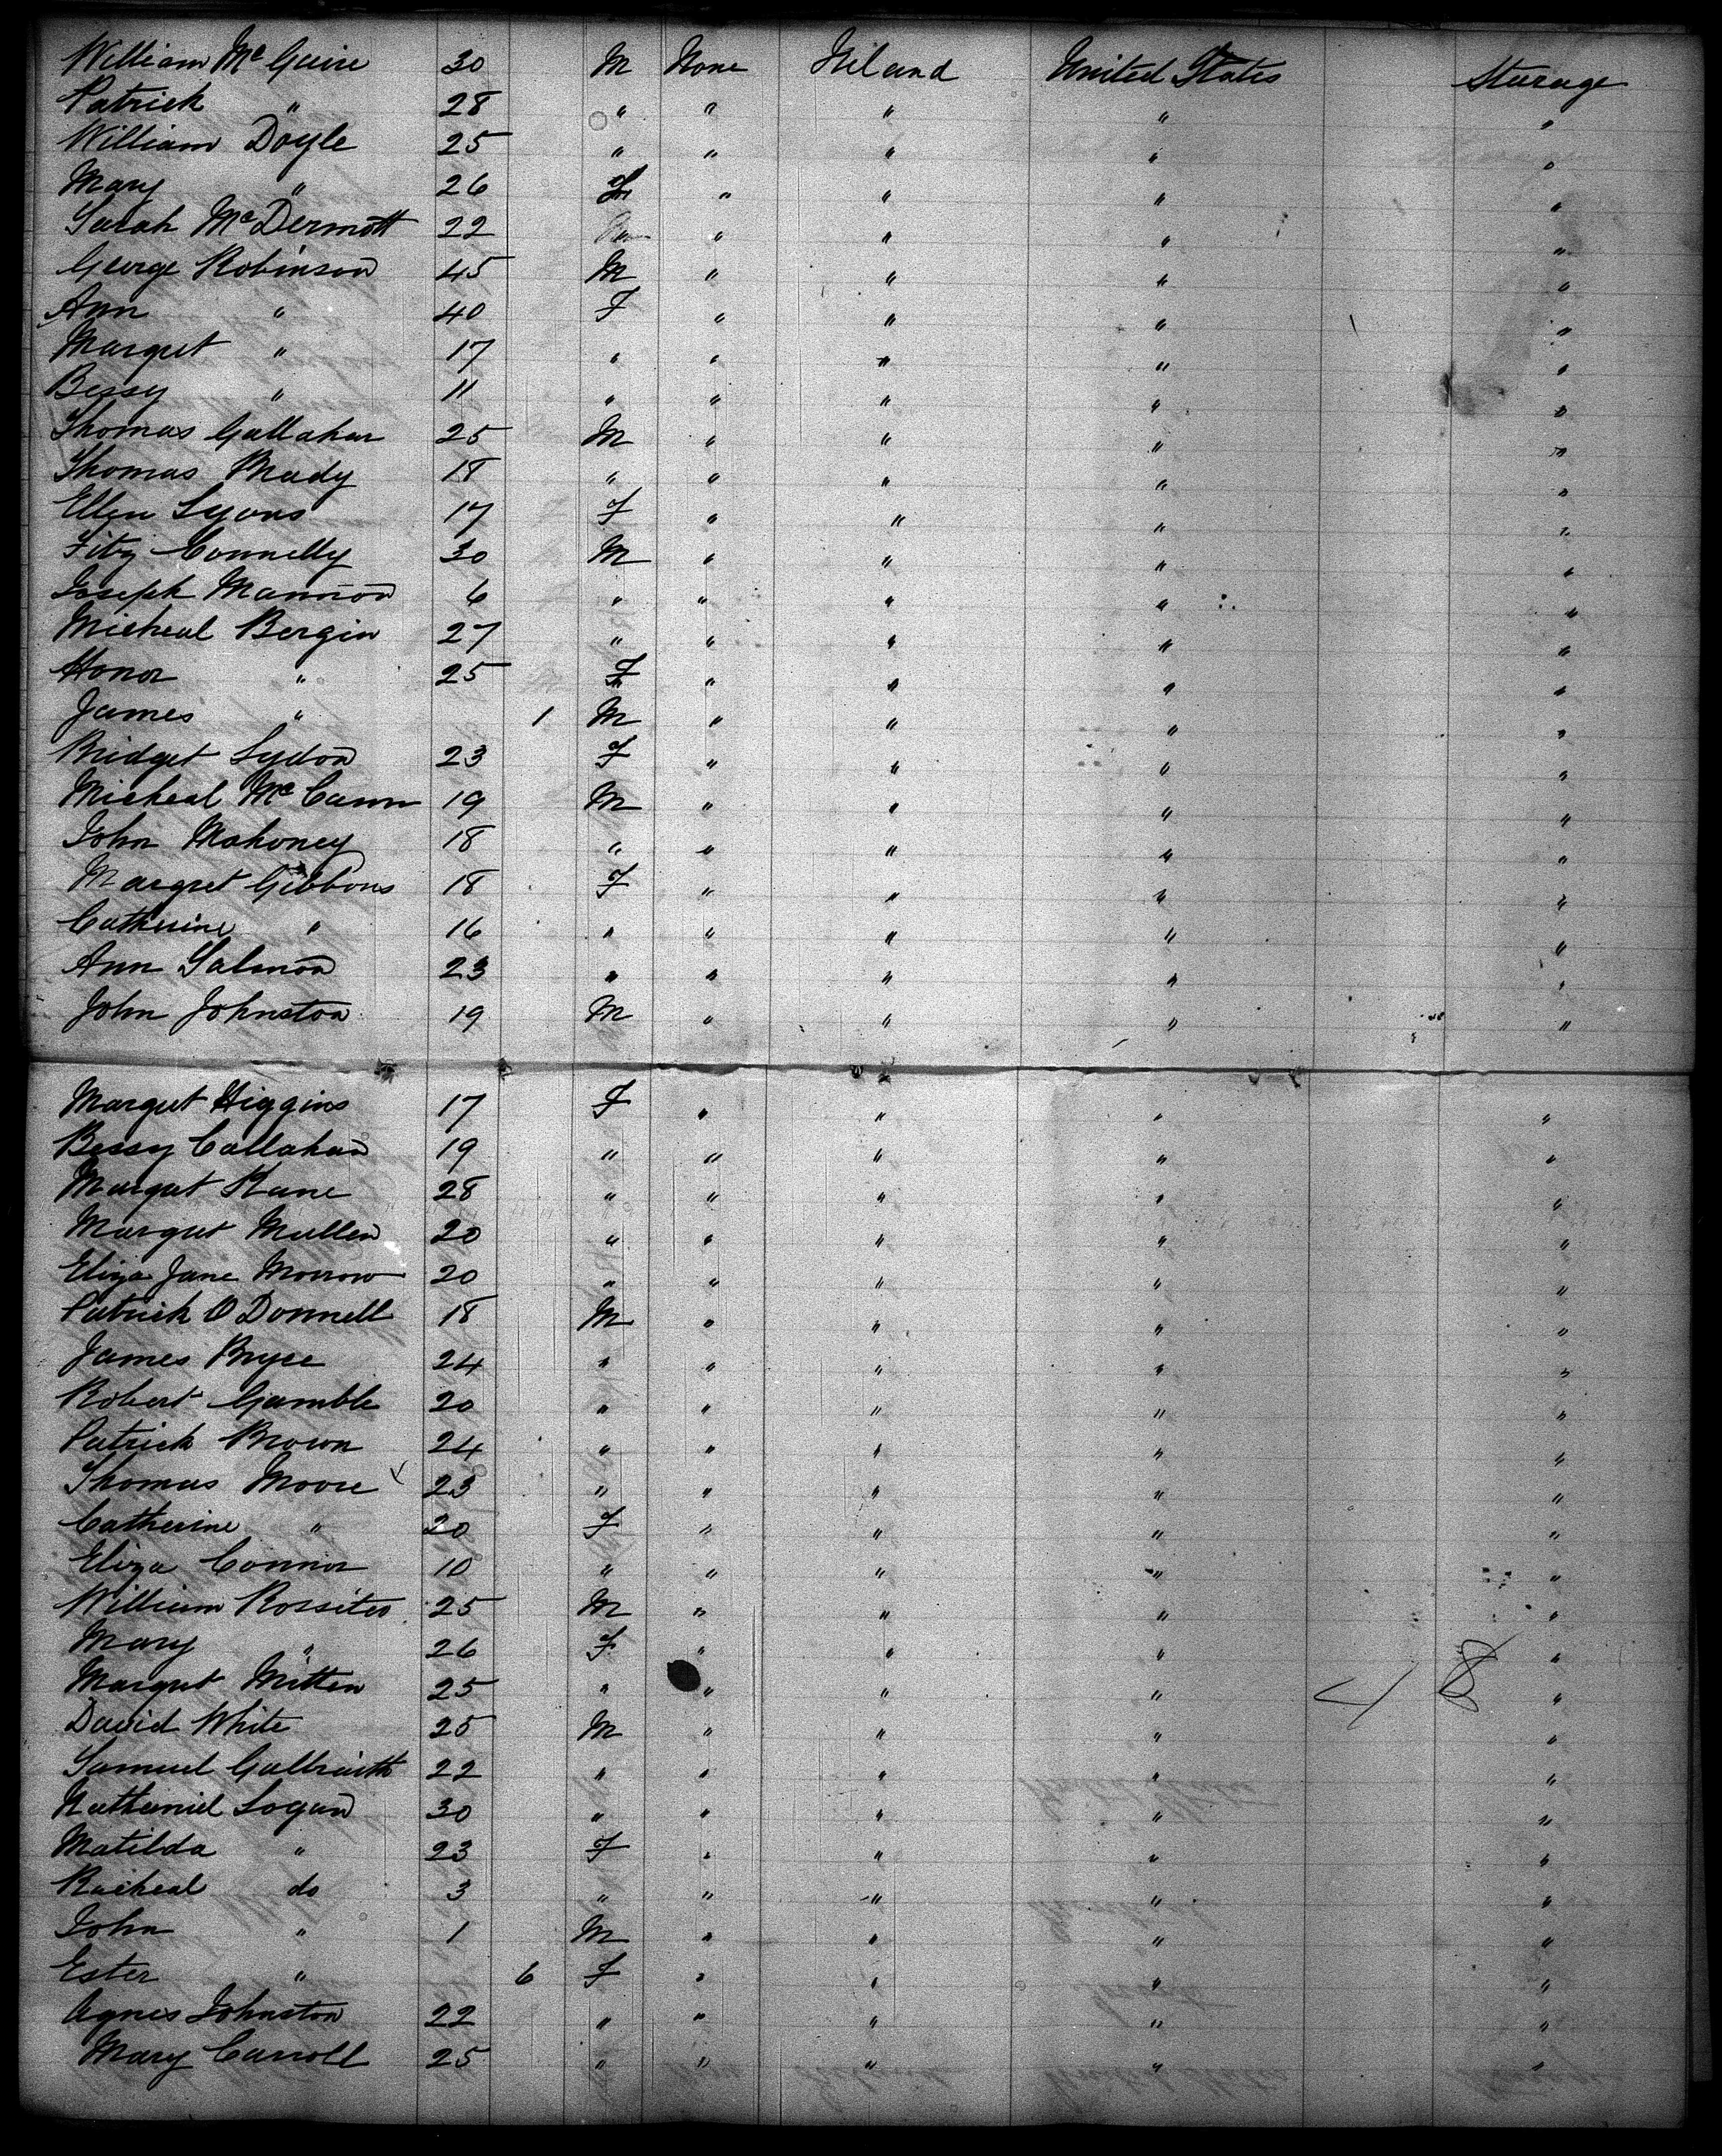 William McGuire 30 M None Ireland United States Steerage
Patrick " 28 " " " " "
William Doyle 25 " " " " "
Mary " 26 F " " " "
Sarah McDermott 22 " " " " "
George Robinson 45 M " " " "
Ann " 40 F " " " "
Margret " 17 " " " " "
Bessy " 11 " " " " "
Thomas Gallahar 25 M " " " "
Thomas Brady 18 " " " " "
Ellen Lyons 17 F " " " "
Fitz Connelly 30 M " " " "
Joseph Mannion 6 " " " " "
Micheal Bergin 27 " " " " "
Honor " 25 F " " " "
James " 1 M " " " "
Bridget Lydon 23 F " " " "
Micheal McCann 19 M " " " "
John Mahoney 18 " " " " "
Margret Gibbons 18 F " " " "
Catherine " 16 " " " " "
Ann Salmon 23 " " " " "
John Johnston 19 M " " " "
Margret Higgins 17 F " " " "
Bessy Callahan 19 " " " " "
Margret Kane 28 " " " " "
Margret Mullen 20 " " " " "
Eliza Jane Morrow 20 " " " " "
Patrick O Donnell 18 M " " " "
James Bryce 24 " " " " "
Robert Gamble 20 " " " " "
Patrick Brown 24 " " " " "
Thomas Moore 23 " " " " "
Catherine " 20 F " " " "
Eliza Connor 10 " " " " "
William Rossiter 25 M " " " "
Mary " 26 F " " " "
Margret Mitten 25 " " " " "
David White 25 M " " " "
Samuel Galbraith 22 " " " " "
Nathaniel Logan 30 " " " " "
Matilda " 23 F " " " "
Racheal do 3 " " " " "
John " 1 M " " " "
Ester " 6 F " " " "
Agnes Johnston 22 " " " " "
Mary Carroll 25 " " " " "